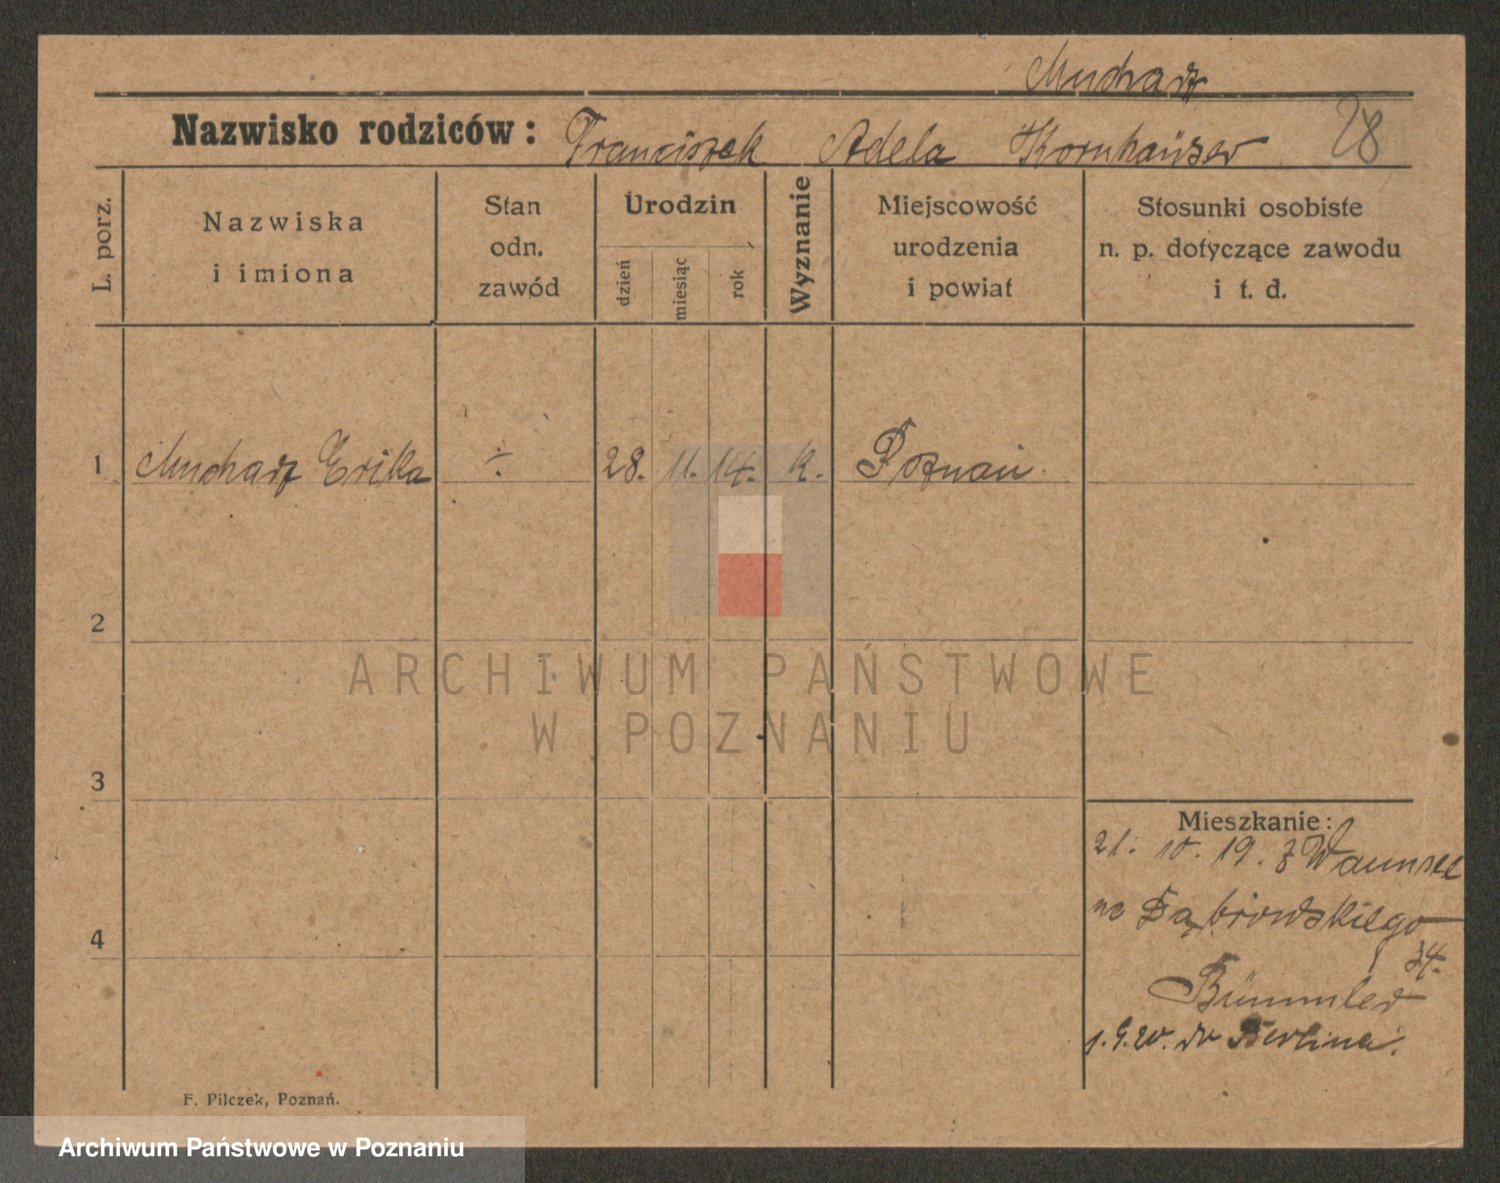 Mucharz
Nazwisko rodziców: Franciszek Adela Kornhäuser 28
L. porz.
Nazwiska
i imiona
Stan
odn.
zawód
Urodzin
dzień
miesiąc
rok
Wyznanie
Miejscowość
urodzenia
i powiat
Stosunki osobiste
n. p. dotyczące zawodu
i t. d.
1 Mucharz Erika ÷ 28. 11. 14. k. Poznań.
2
ARCHIWUM PAŃSTWOWE
W POZNANIU
3
Mieszkanie:
21. 10. 19. z Wannsee
na Dąbrowskiego
34.
4
Bümmler
1.9.20. do Berlina.
F. Pilczek, Poznań.
Archiwum Państwowe w Poznaniu